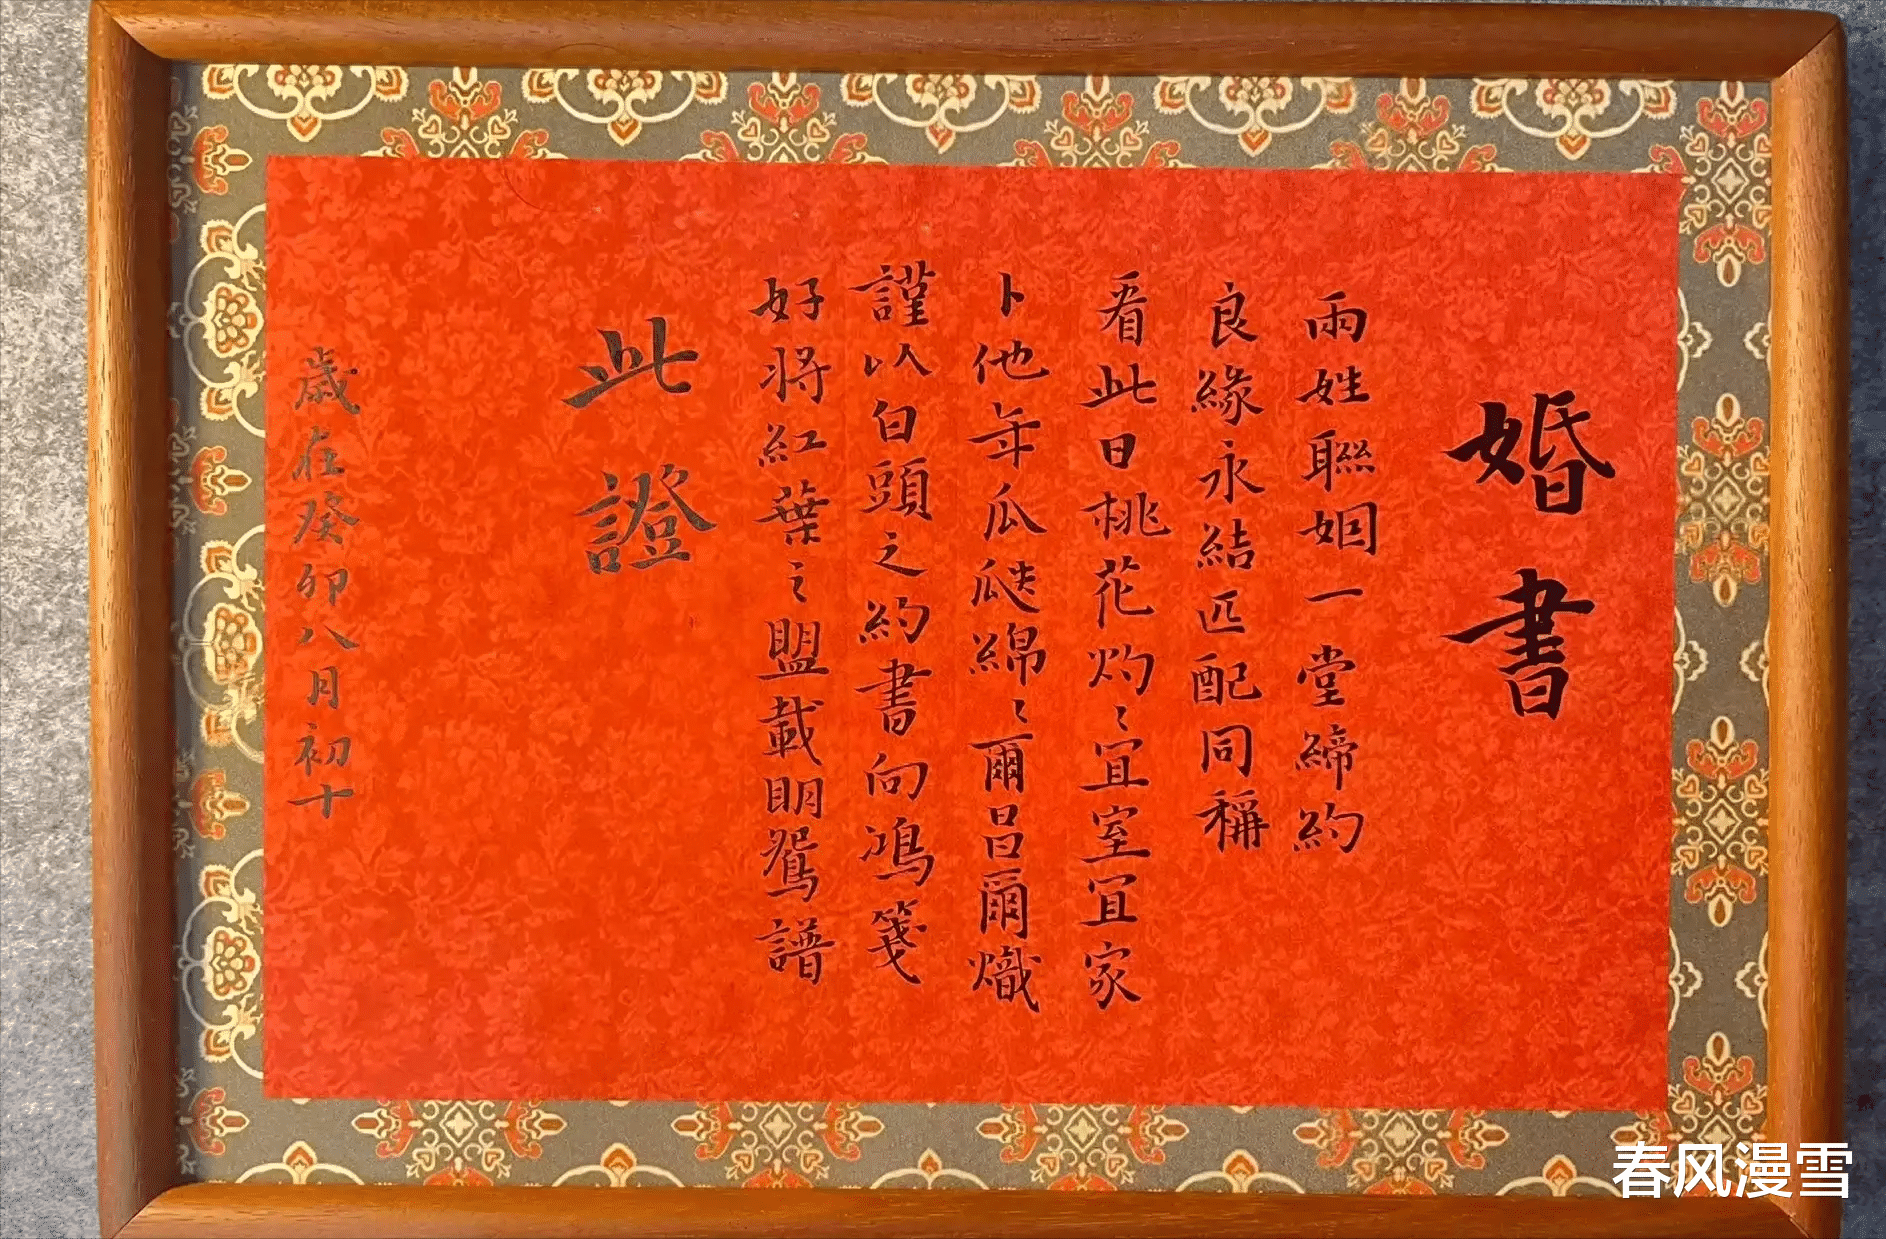 婚書
兩姓聯姻一堂締約
良緣永結匹配同稱
看此日桃花灼〻宜室宜家
卜他年瓜瓞綿〻爾昌爾熾
謹以白頭之約書向鴻箋
好將紅葉之盟載明鴛譜
此證
歲在癸卯八月初十
春风漫雪